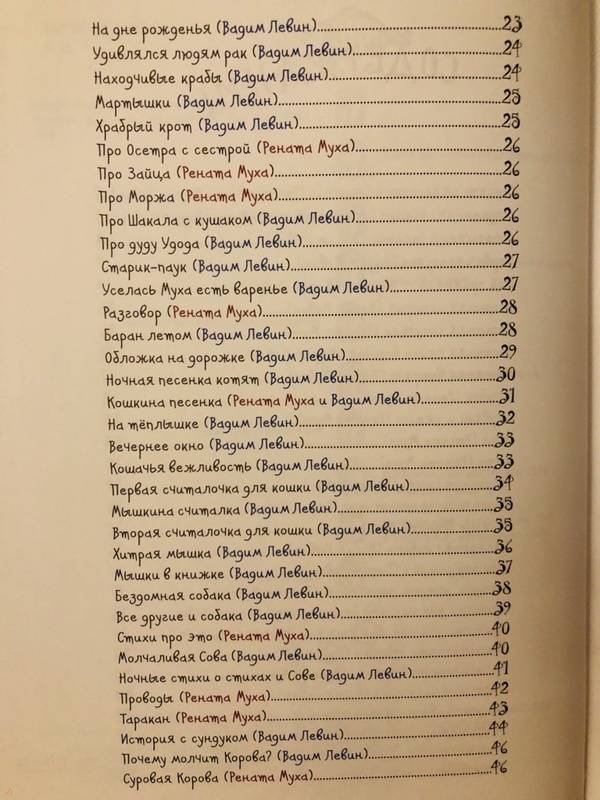 На дне рожденья (Вадим Левин)....................23
Удивлялся людям рак (Вадим Левин)....................24
Находчивые крабы (Вадим Левин)....................24
Мартышки (Вадим Левин)....................25
Храбрый крот (Вадим Левин)....................25
Про Осетра с сестрой (Рената Муха)....................26
Про Зайца (Рената Муха)....................26
Про Моржа (Рената Муха)....................26
Про Шакала с кушаком (Вадим Левин)....................26
Про дуду Удода (Вадим Левин)....................26
Старик-паук (Вадим Левин)....................27
Уселась Муха есть варенье (Вадим Левин)....................27
Разговор (Рената Муха)....................28
Баран летом (Вадим Левин)....................28
Обложка на дорожке (Вадим Левин)....................29
Ночная песенка котят (Вадим Левин)....................30
Кошкина песенка (Рената Муха и Вадим Левин)....................31
На тёплышке (Вадим Левин)....................32
Вечернее окно (Вадим Левин)....................33
Кошачья вежливость (Вадим Левин)....................33
Первая считалочка для кошки (Вадим Левин)....................34
Мышкина считалка (Вадим Левин)....................35
Вторая считалочка для кошки (Вадим Левин)....................35
Хитрая мышка (Вадим Левин)....................36
Мышки в книжке (Вадим Левин)....................37
Бездомная собака (Вадим Левин)....................38
Все другие и собака (Вадим Левин)....................39
Стихи про это (Рената Муха)....................40
Молчаливая Сова (Вадим Левин)....................40
Ночные стихи о стихах и Сове (Вадим Левин)....................41
Проводы (Рената Муха)....................42
Таракан (Рената Муха)....................43
История с сундуком (Вадим Левин)....................44
Почему молчит Корова? (Вадим Левин)....................46
Суровая Корова (Рената Муха)....................46